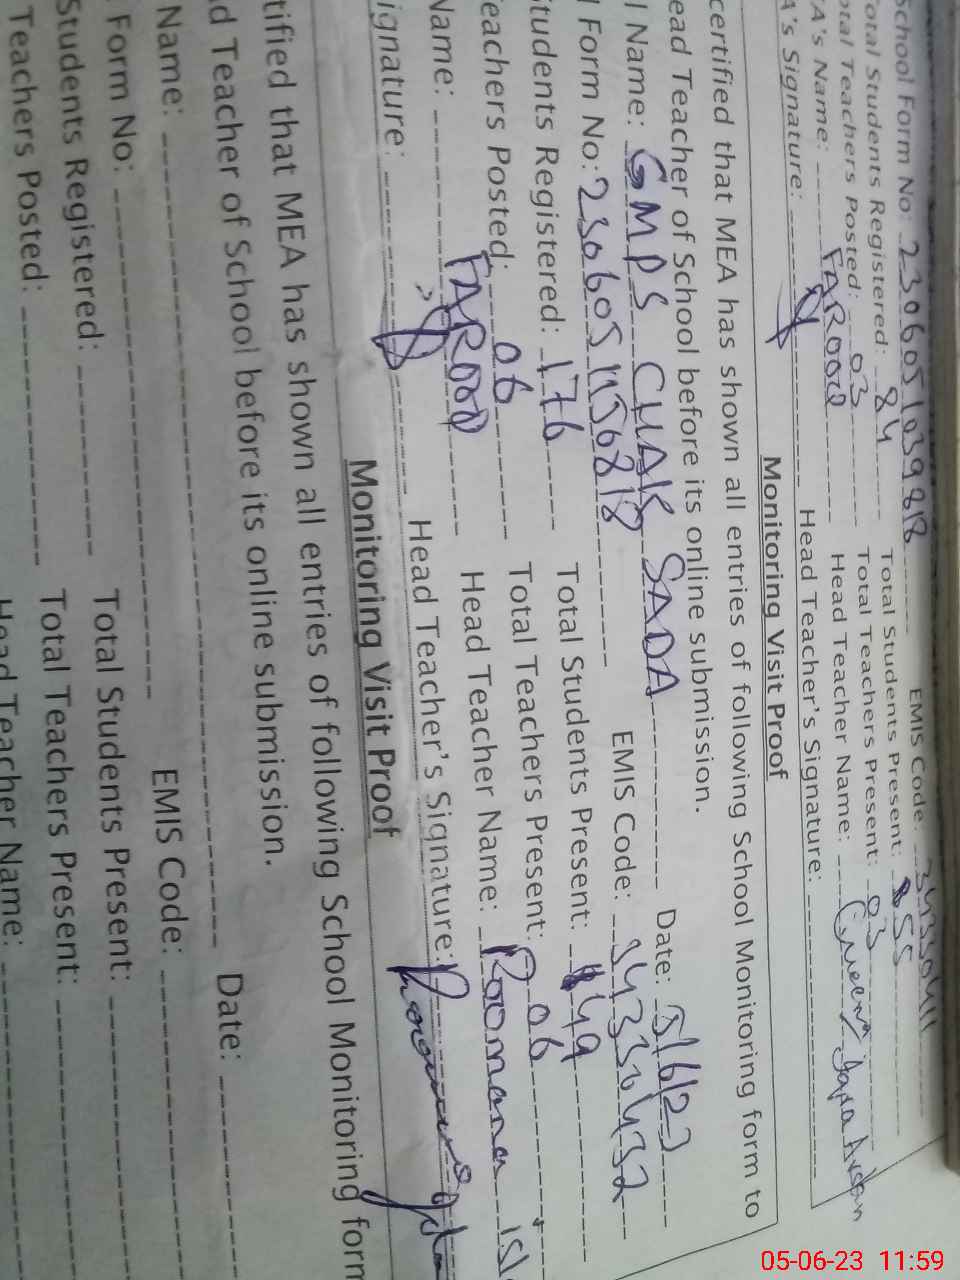 School Form No: 230605103981B EMIS Code: 34330411
Total Students Registered: 84 Total Students Present: 55
Total Teachers Posted: 03 Total Teachers Present: 03
A's Name: FAROOQ Head Teacher Name:
A's Signature: Head Teacher's Signature:
Monitoring Visit Proof
certified that MEA has shown all entries of following School Monitoring form to
ead Teacher of School before its online submission.
l Name: GMPS CHAK SADA Date: 5/6/23
l Form No: EMIS Code: 34330432
tudents Registered: 176 Total Students Present: 149
eachers Posted: 06 Total Teachers Present: 06
Name: FAROOQ Head Teacher Name: Roomana Isl
ignature: Head Teacher's Signature:
Monitoring Visit Proof
tified that MEA has shown all entries of following School Monitoring form
d Teacher of School before its online submission.
Name: Date:
Form No: EMIS Code:
Students Registered: Total Students Present:
Teachers Posted: Total Teachers Present:
Head Teacher Name:
05-06-23 11:59